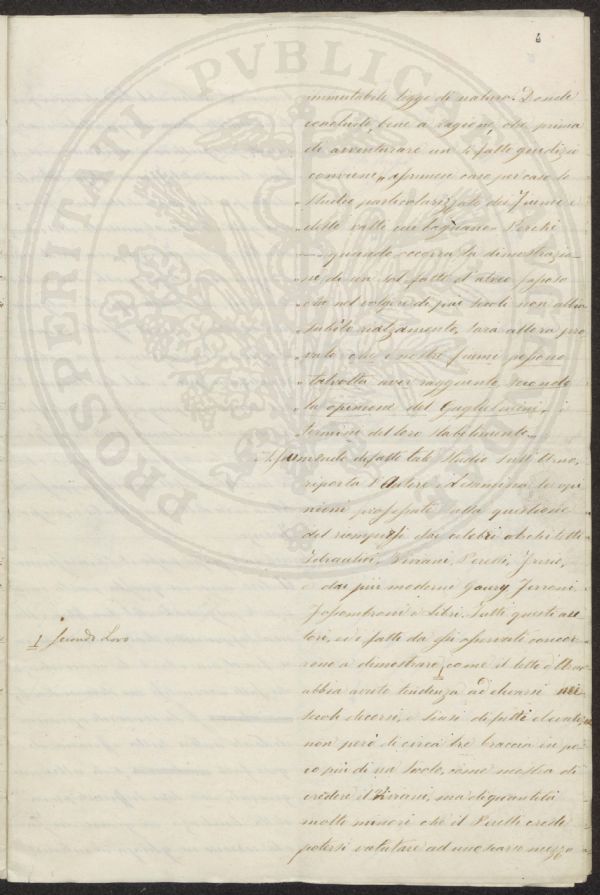 6
PROSPERITATI PVBLICAE
immutabile legge di natura. Donde
conclude, bene a ragione, che prima
di avventurare un tal fatto giudizio
conviene, caso per caso lo
studio particolarizzato dei fiumi e
delle valli cui bagnano. Perchè
quando occorra la dimostrazio-
ne di un tal fatto d'alveo
che nel volger di più secoli non abbia
subito rialzamento, sarà allora pro-
vato che i nostri fiumi possono
talvolta aver raggiunto, secondo
la opinione del Guglielmini, i
termini del loro stabilimento.
Assumendo difatti tale studio sull'Arno,
riporta l'Autore e esamina le opi-
nioni professate sulla questione
dai celebri architetti
Idraulici, Viviani, Perelli,
e dai più moderni Goury, Ferroni,
Fossombroni e Libri. Tutti questi au-
tori, ed i fatti da essi osservati concor-
rono a dimostrare, come il letto d'Arno
1 secondo Loro
abbia avuto tendenza ad elevarsi nei
secoli decorsi, e siasi difatti elevato,
non però di circa tre braccia in po-
co più di un secolo, come mostra di
credere il Viviani, ma di quantità
molto minori che il Perelli crede
potersi valutare ad uno mezzo